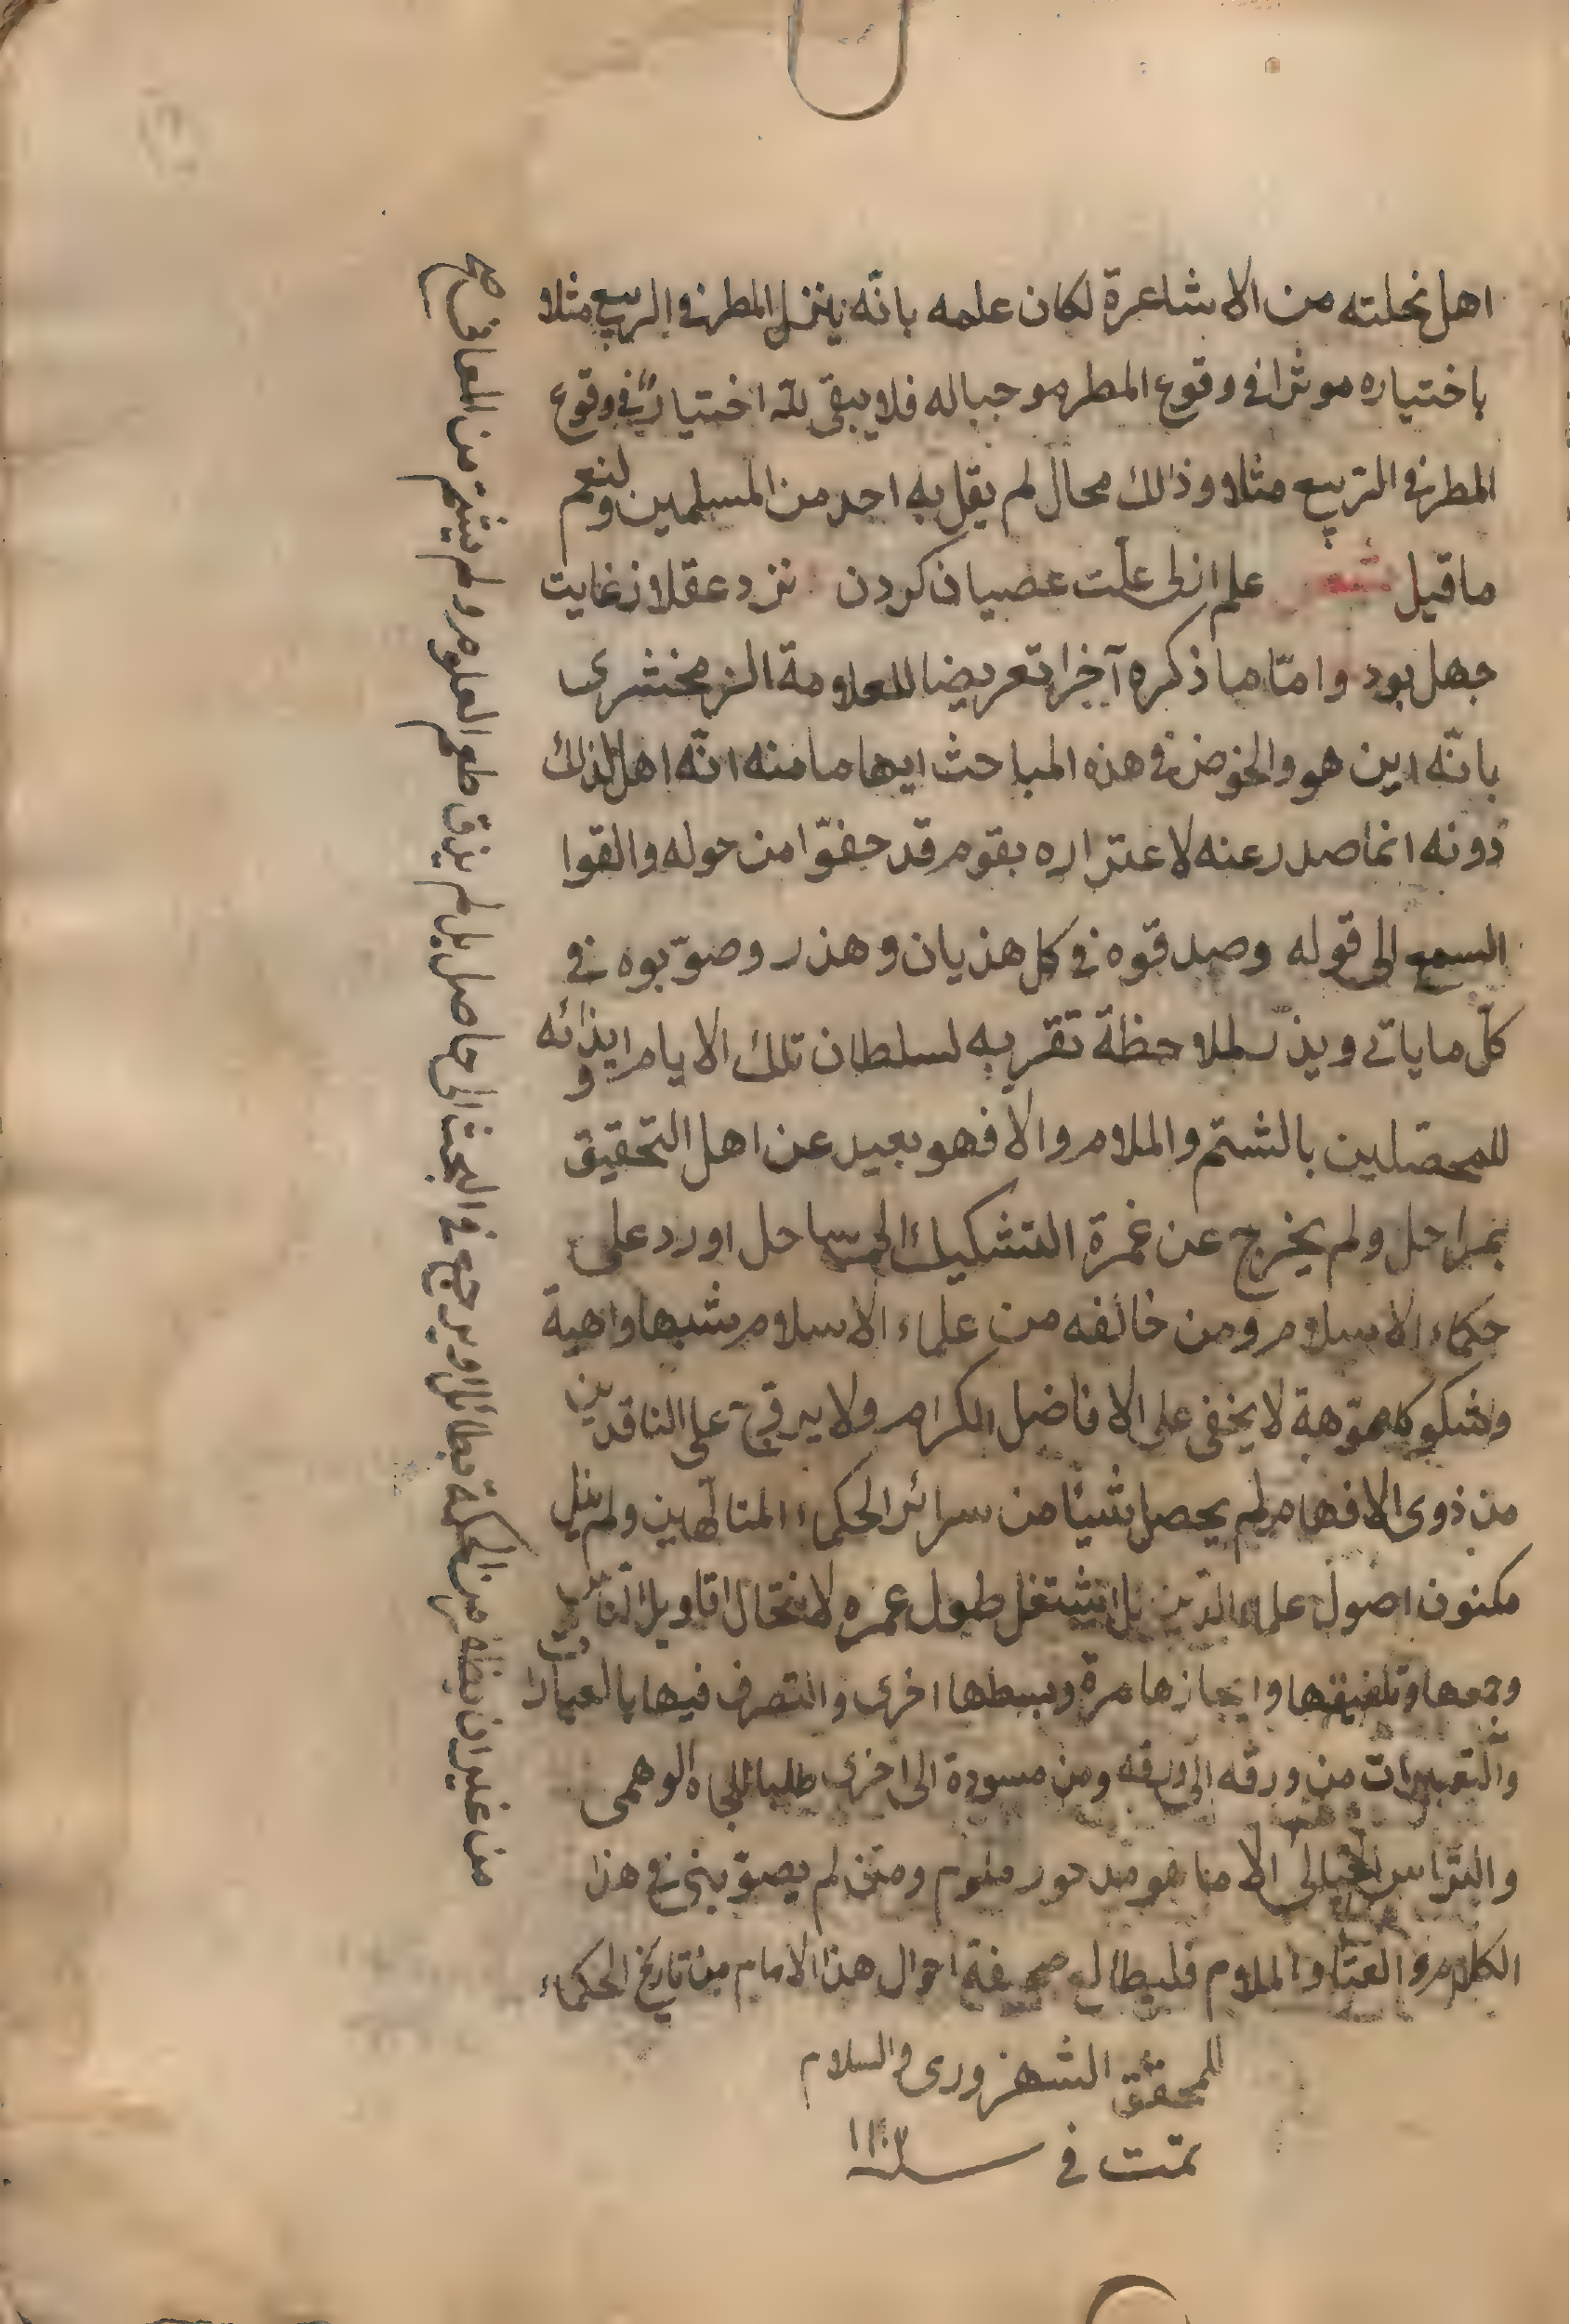 اهل نحلته من الاشاعرة لكان علمه بانّه ينزل المطر في الربيع مثلا
باختياره موثرا في وقوع المطر موجبا له فلا يبقى لله اختيار في وقوع
المطر في الربيع مثلا وذلك محال لم يقل به احد من المسلمين ولنعم
ما قيل شعر علم ازلى علّت عصيان كردن نزد عقلا ز غايت
جهل بود وامّا ما ذكره آخرا تعريضا للعلامة الزمخشرى
بانّه اين هو والخوض في هذه المباحث ايهاما منه انّه اهل لذلك
دونه انما صدر عنه لاغتراره بقوم قد حفّوا من حوله والقوا
السمع الى قوله وصدقوه في كل هذيان وهذر وصوّبوه في
كلّ ما ياتى ويذر لملاحظة تقربه لسلطان تلك الايام وايذائه
للمحصلين بالشتم والملام والا فهو بعيد عن اهل التحقيق
بمراحل ولم يخرج عن غمرة التشكيك الى الساحل اورد على
حكماء الاسلام ومن خالفه من علماء الاسلام شبها واهية
وشكوكا مموّهة لا يخفى على الافاضل الكرام ولا يروج على الناقدين
من ذوى الافهام لم يحصل شيئا من سرائر الحكماء المتالّهين ولم ينل
مكنون اصول علماء الدّين بل اشتغل طول عمره لانتحال اقاويل النّاس
وجمعها وتلفيقها وايجازها مرة وبسطها اخرى والتصرف فيها بالعبارات
والتعبيرات من ورقه الى ورقه ومن مسودة الى اخرى طلبا للجاه الوهمى
والترأس الخيالى الا ما هو مدحور ملوم ومن لم يصوّبنى في هذا
الكلام والعتاب والملام فليطالع صحيفة احوال هذا الامام من تاريخ الحكماء
للمحقق الشهزورى والسلام
تمت في سنة ١١٠٣
من غير ان يظفر من الحكمة بطائل او يرجع في البحث الى حاصل بل لم يذق طعم العلوم ولم يشم من المعارف